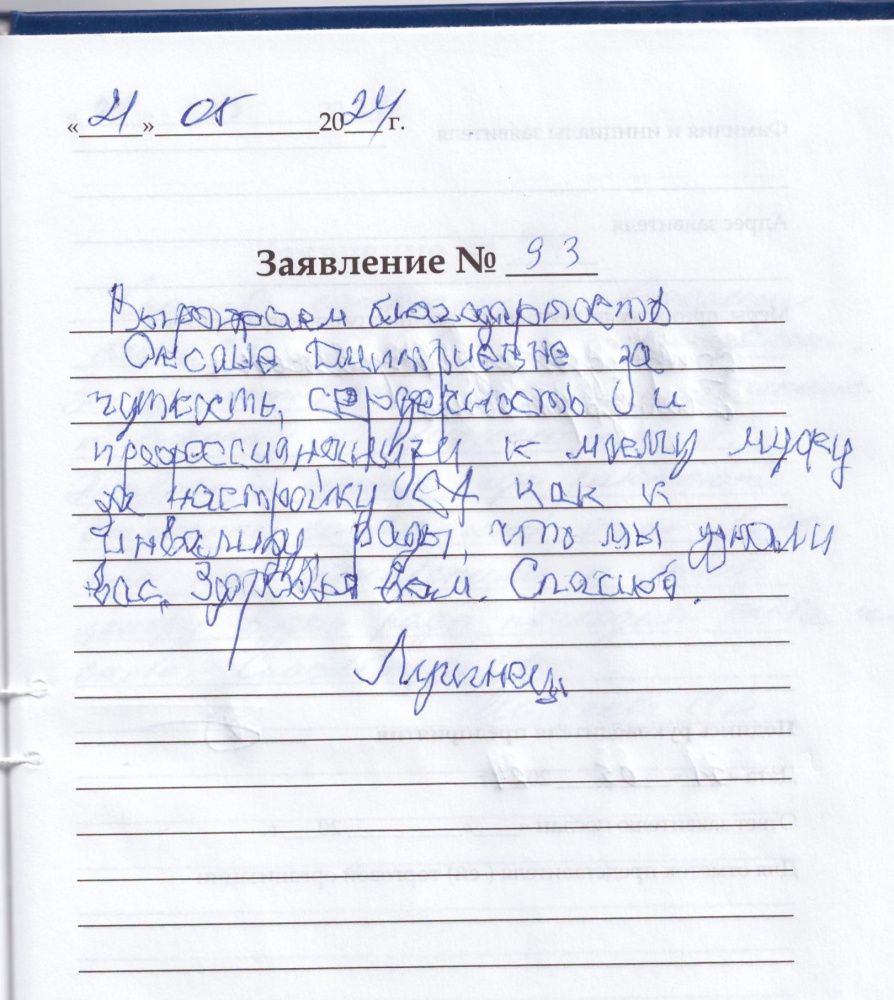 «21» 05 2024 г.
Заявление № 93
Выражаем благодарность
Оксане Дмитриевне за
чуткость, сердечность и
профессионализм к моему мужу
за настройку СА как к
инвалиду. Рады, что мы узнали
Вас. Здоровья Вам. Спасибо.